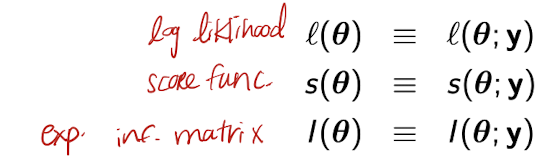 log liklihood ℓ(θ) ≡ ℓ(θ; y)
score func. s(θ) ≡ s(θ; y)
exp. inf. matrix I(θ) ≡ I(θ; y)